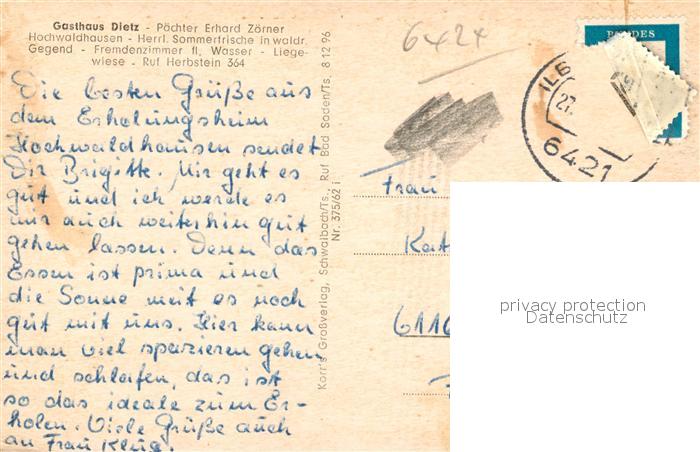 Gasthaus Dietz - Pächter Erhard Zörner
Hochwaldhausen - Herrl. Sommerfrische in waldr.
Gegend - Fremdenzimmer fl. Wasser - Liege-
wiese - Ruf Herbstein 364
Die besten Grüße aus
dem Erholungsheim
Hochwaldhausen sendet
Dir Brigitte. Mir geht es
gut und ich werde es
mir auch weiterhin gut
gehen lassen. Denn das
Essen ist prima und
die Sonne meit es noch
gut mit uns. Hier kann
man viel spazieren gehen
und schlafen, das ist
so das ideale zum Er-
holen. Viele Grüße auch
an Frau Klug.
Korr's Großverlag, Schwalbach/Ts., Ruf Bad Soden/Ts. 8 12 96
Nr. 375/62 i
6424
ILB
27.
6421
Frau
Kat
6116
privacy protection
Datenschutz